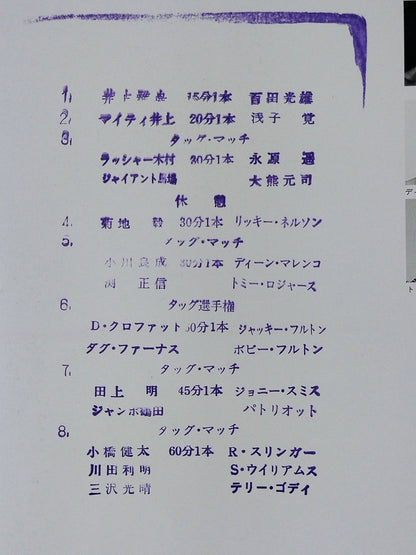 1. 井上雅央 15分1本 百田光雄
2. マイティ井上 20分1本 浅子 覚
3. タッグ・マッチ
ラッシャー木村 30分1本 永源 遥
ジャイアント馬場 大熊元司
休憩
4. 菊地 毅 30分1本 リッキー・ネルソン
5. タッグ・マッチ
小川良成 30分1本 ディーン・マレンコ
渕 正信 トミー・ロジャース
6. タッグ選手権
D・クロファット 60分1本 ジャッキー・フルトン
ダグ・ファーナス ボビー・フルトン
7. タッグ・マッチ
田上 明 45分1本 ジョニー・スミス
ジャンボ鶴田 パトリオット
8. タッグ・マッチ
小橋健太 60分1本 R・スリンガー
川田利明 S・ウイリアムス
三沢光晴 テリー・ゴディ